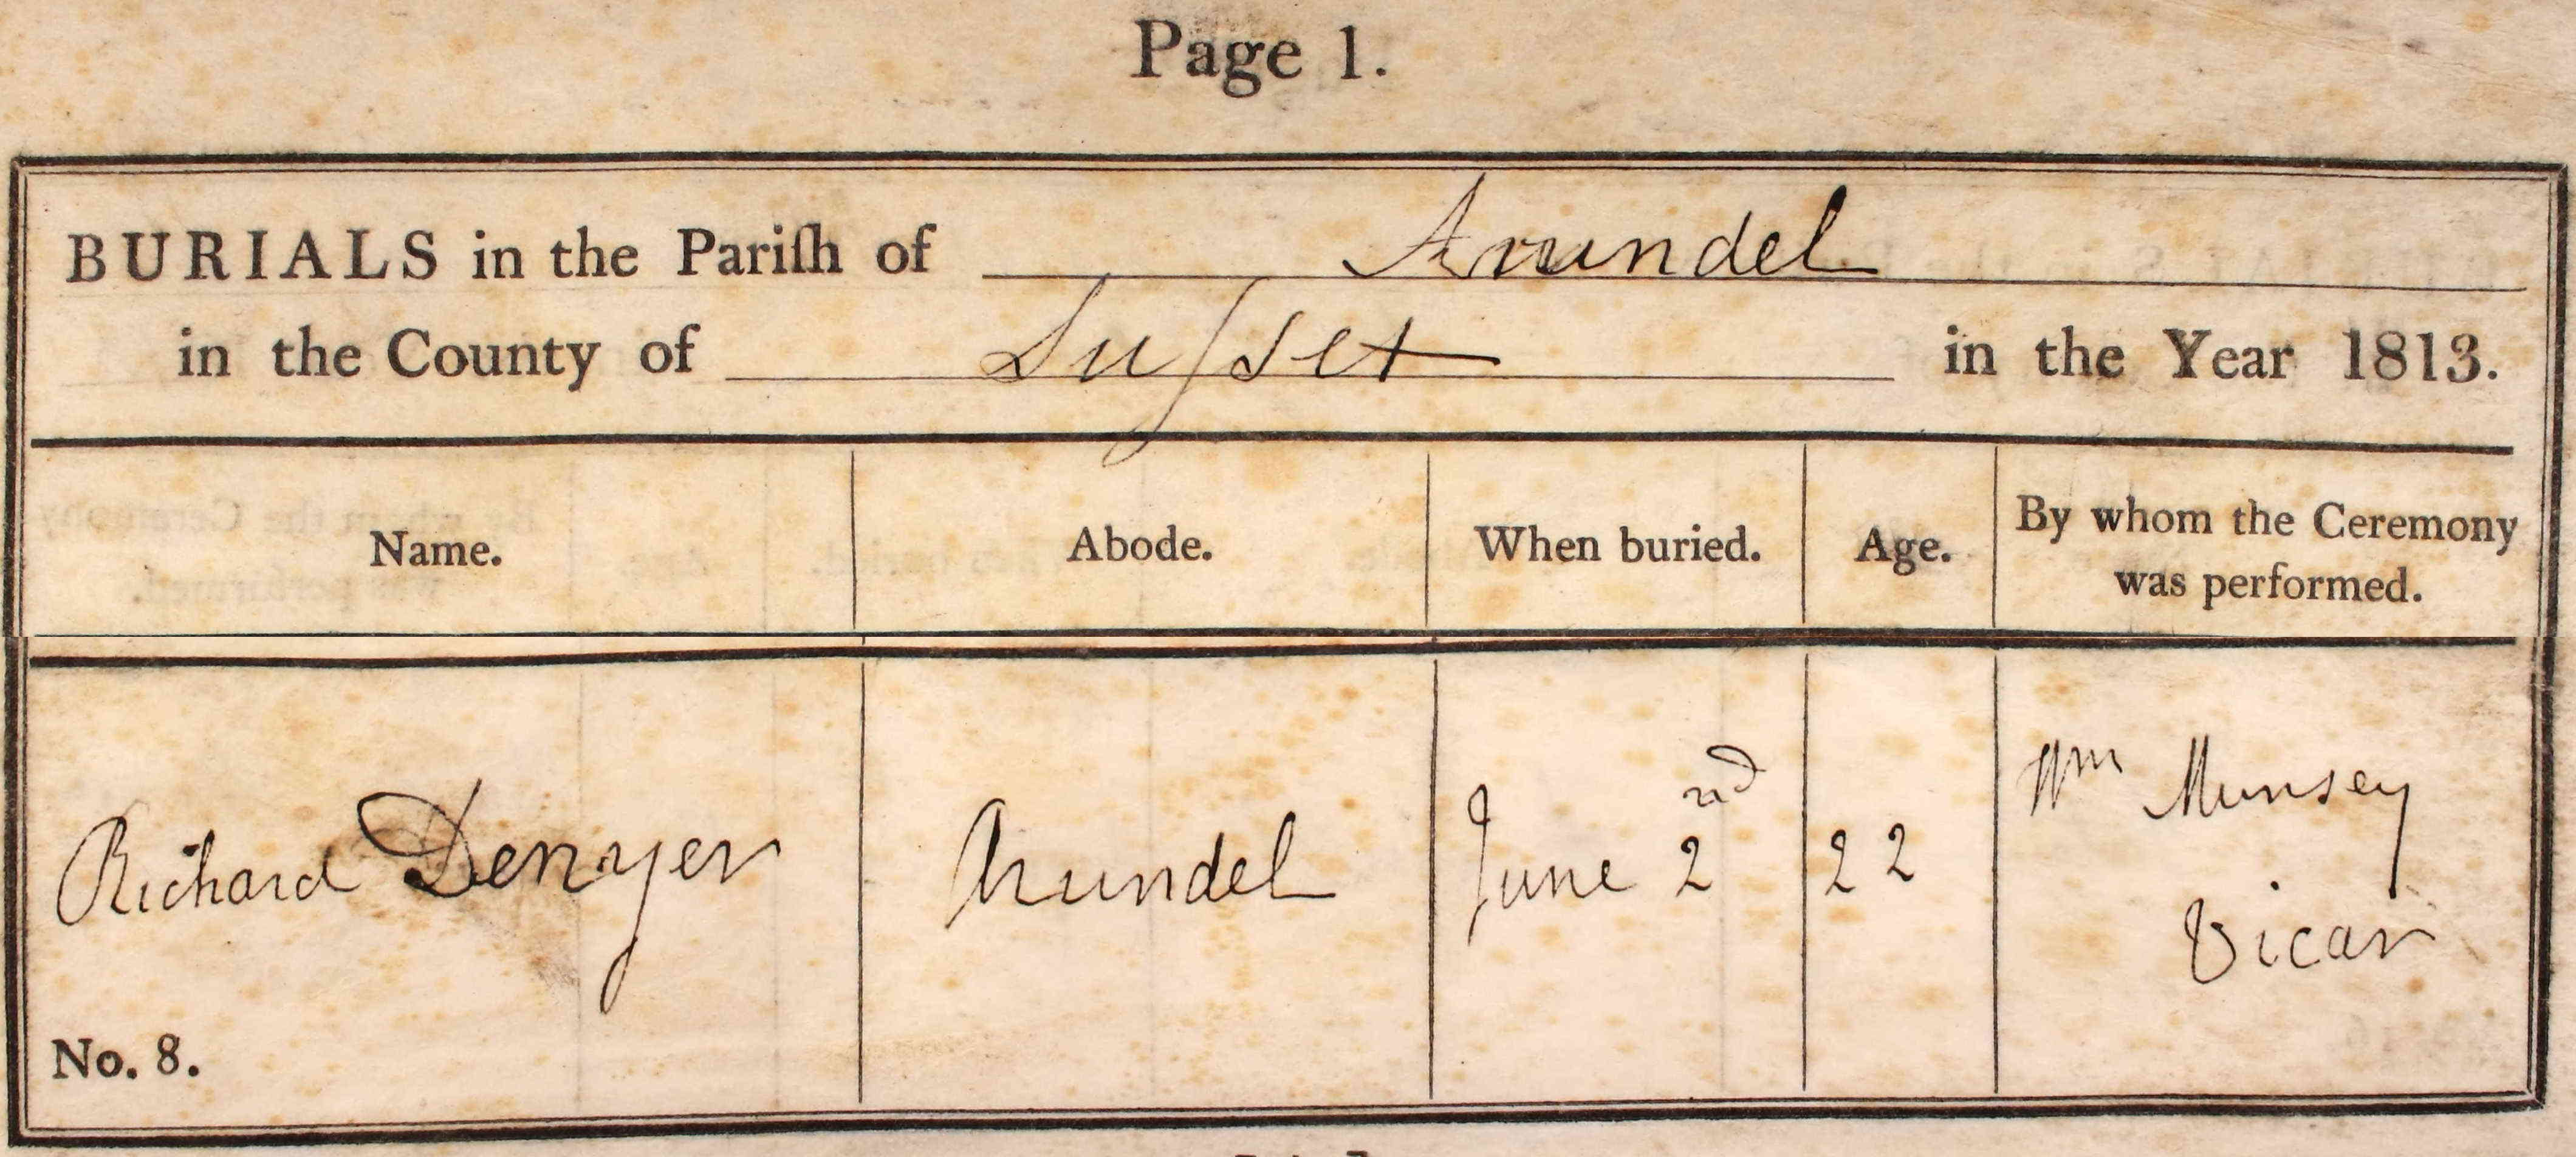 Page 1.
BURIALS in the Pariſh of Arundel
in the County of Suſsex in the Year 1813.
Name. Abode. When buried. Age. By whom the Ceremony was performed.
Richard Denyer Arundel June 2nd 22 Wm Munsey
Vicar
No. 8.